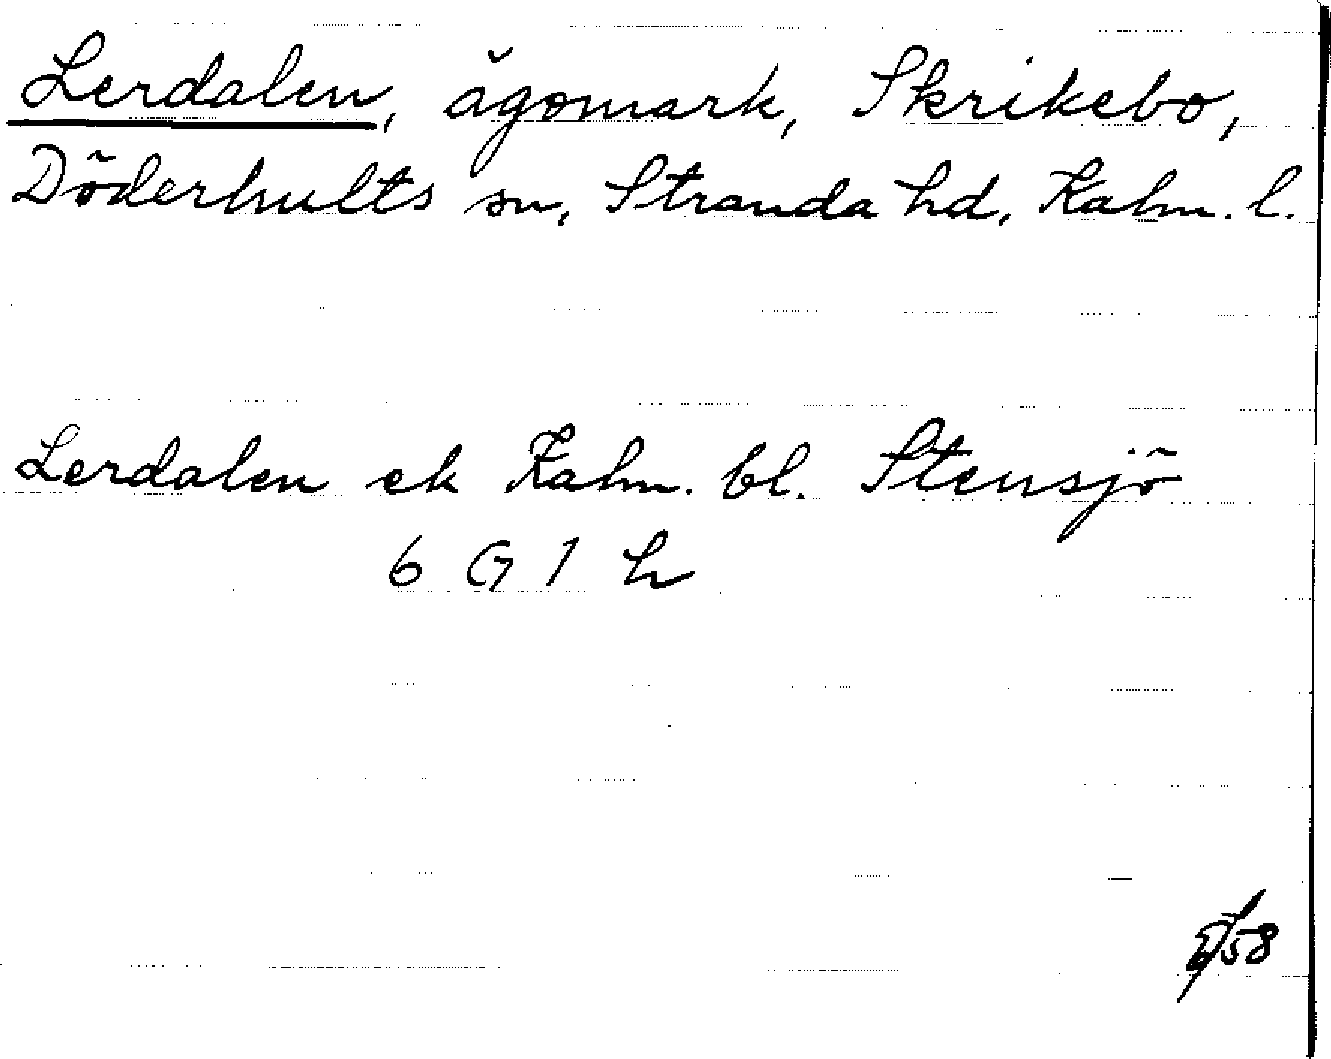 Lerdalen, ägomark, Skrikebo,
Döderhults sn, Stranda hd, Kalm. l.
Lerdalen ek Kalm. bl. Stensjö
6 G 1 h
58